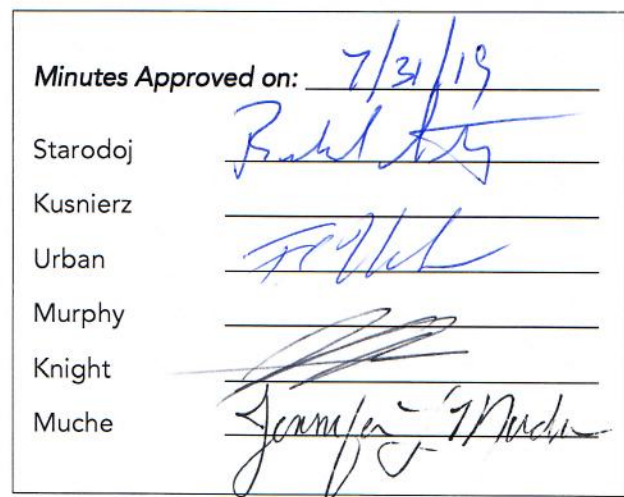 Minutes Approved on: 7/31/19
Starodoj
Kusnierz
Urban
Murphy
Knight
Muche Jennifer Muche